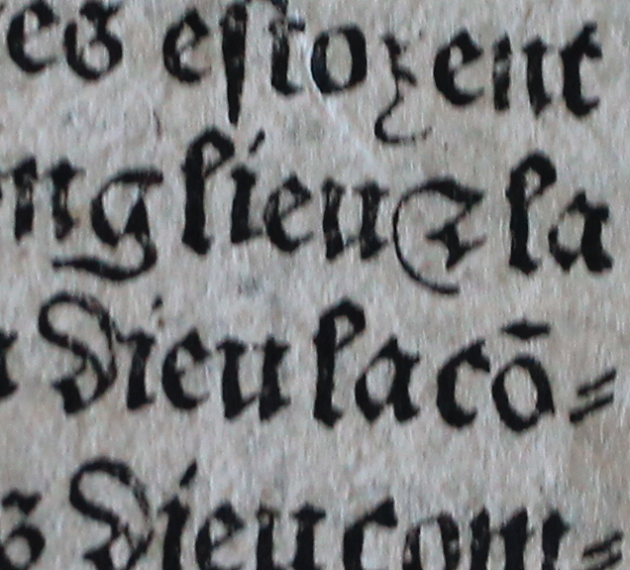 es eſtoyent
ng lieu ⁊ la
Dieu la cō⸗
Dieu com⸗